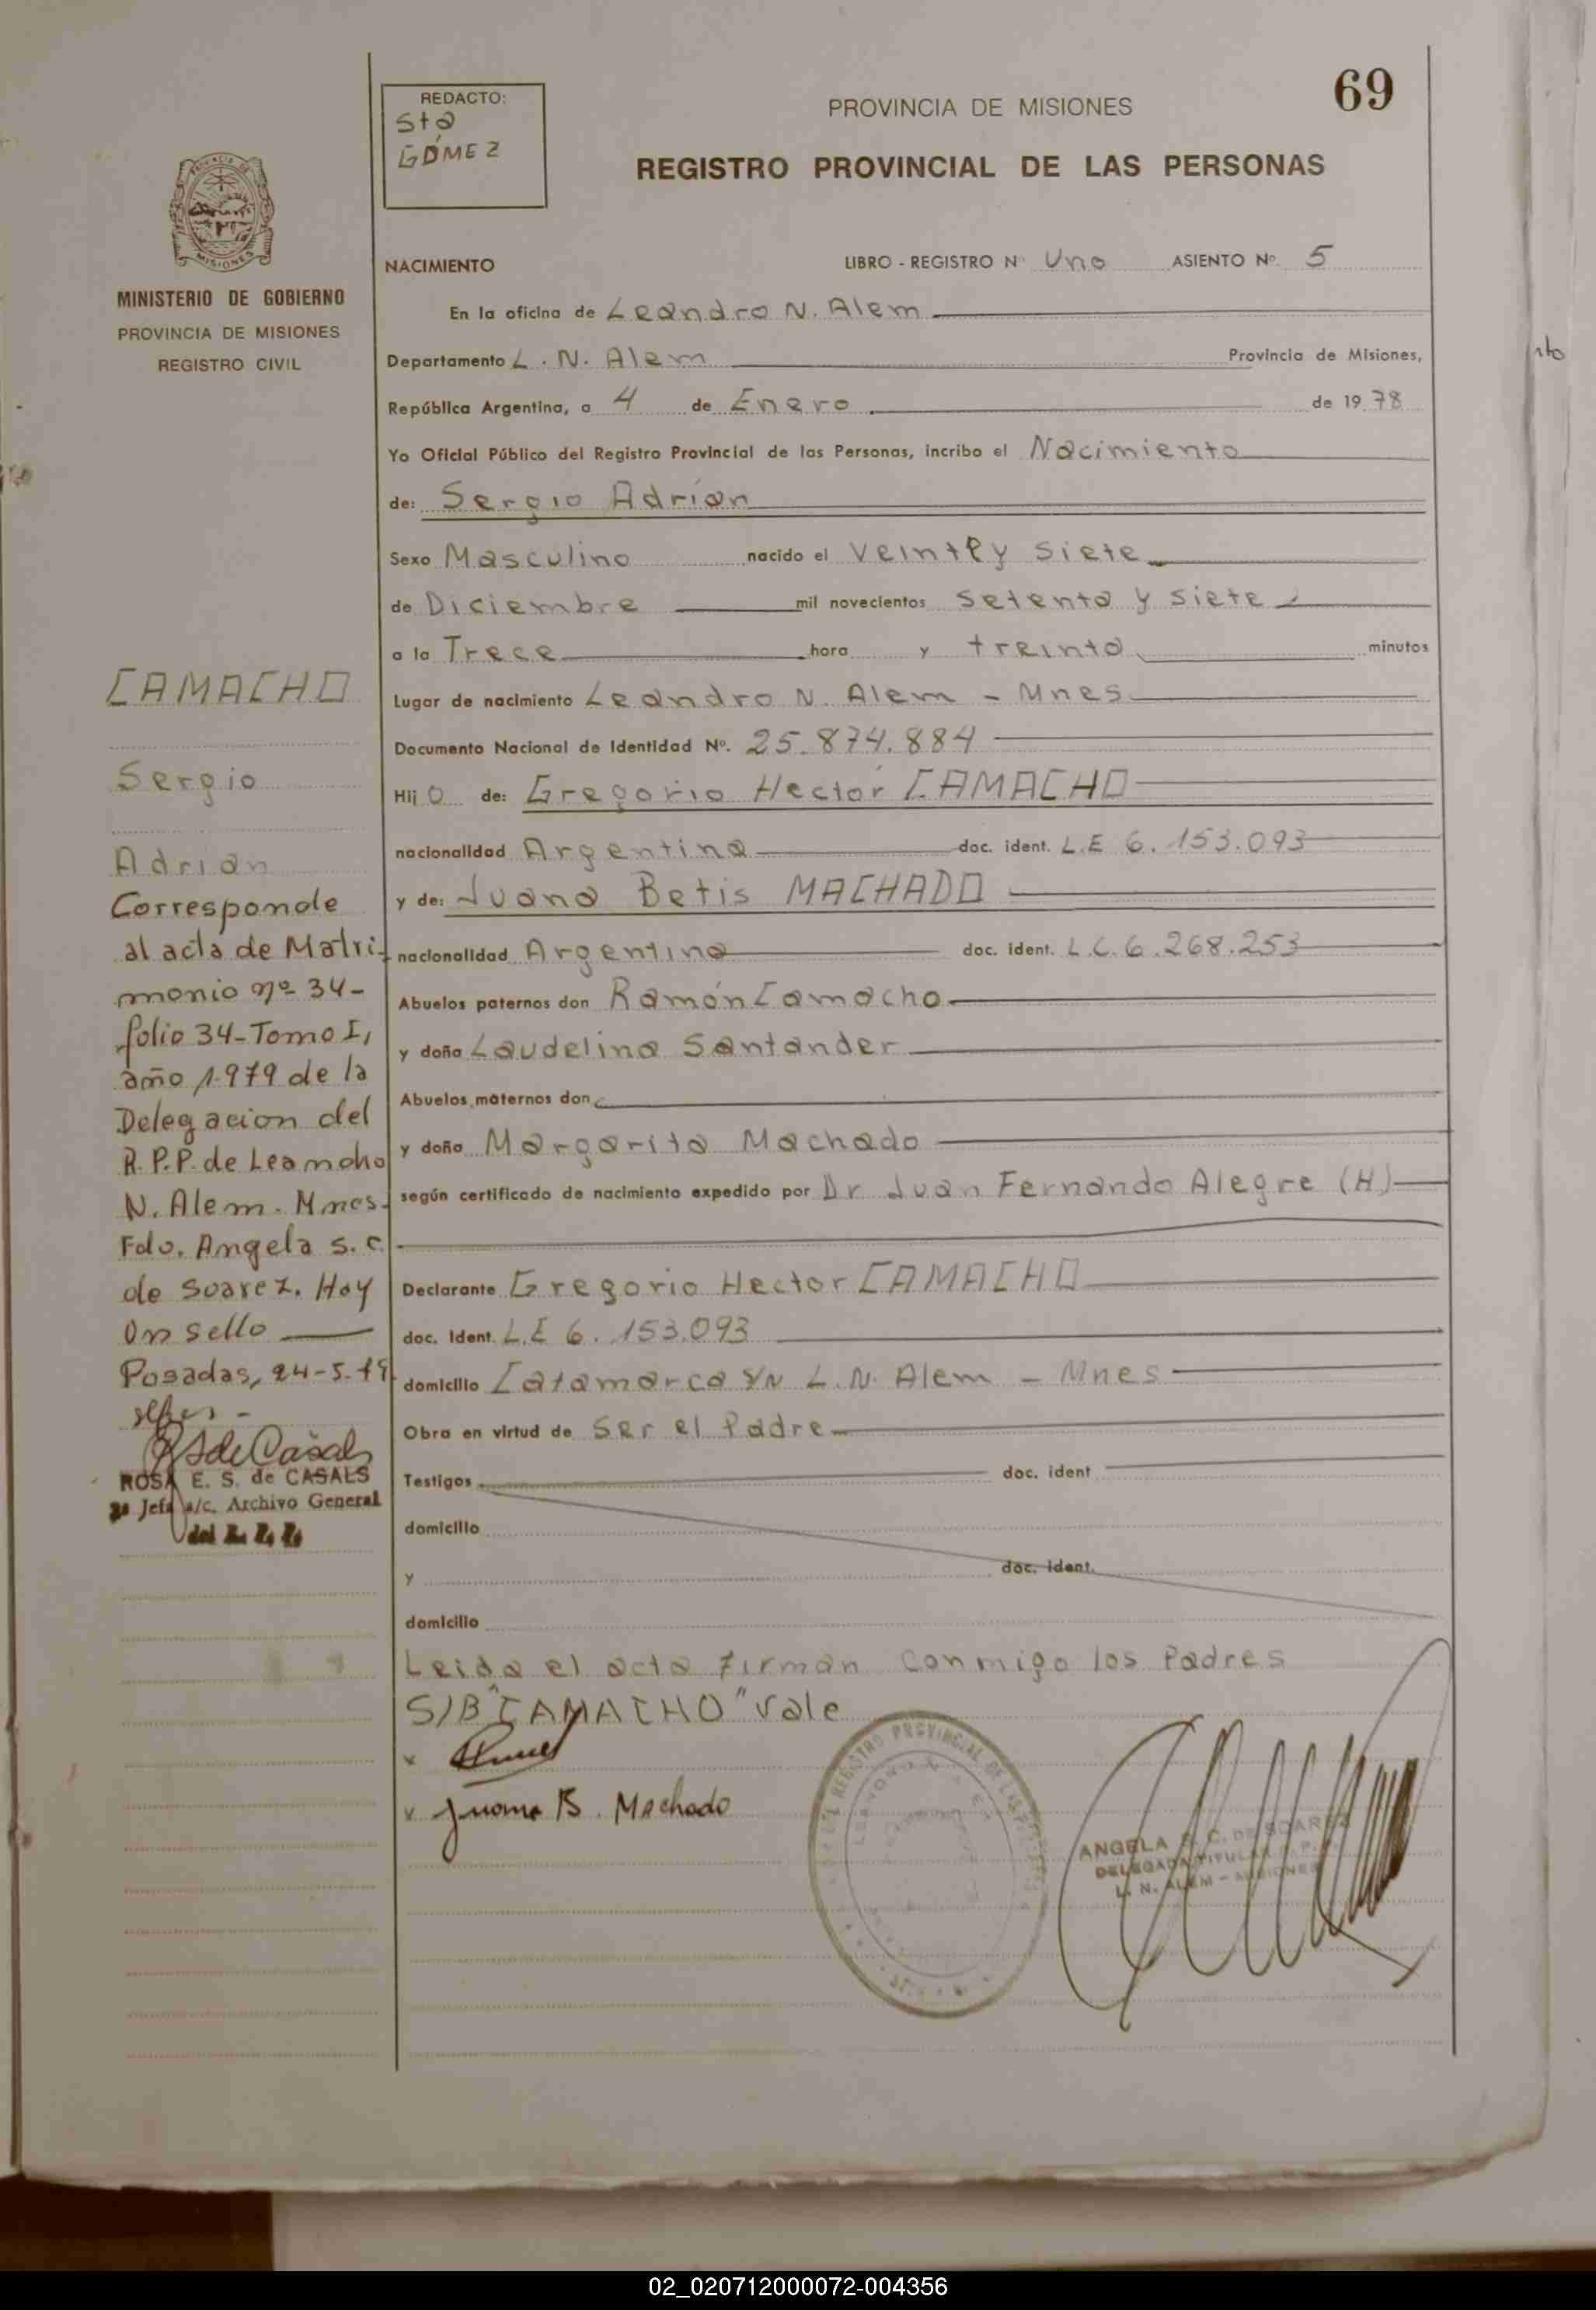 69
REDACTO:
Sta
GÓMEZ
PROVINCIA DE MISIONES
REGISTRO PROVINCIAL DE LAS PERSONAS
MISIONES
MINISTERIO DE GOBIERNO
PROVINCIA DE MISIONES
REGISTRO CIVIL
NACIMIENTO LIBRO - REGISTRO Nº Uno ASIENTO Nº. 5
En la oficina de Leandro N. Alem
Departamento L. N. Alem Provincia de Misiones,
República Argentina, a 4 de Enero de 1978
Yo Oficial Público del Registro Provincial de las Personas, incribo el Nacimiento
de: Sergio Adrián
Sexo Masculino nacido el Veintey siete
de Diciembre mil novecientos setenta y siete
a la Trece hora y treinta minutos
Lugar de nacimiento Leandro N. Alem - Mnes
Documento Nacional de Identidad Nº. 25.874.884
Hijo de: Gregorio Hector CAMACHO
nacionalidad Argentina doc. ident. L.E 6.153.093
y de: Juana Betis MACHADO
nacionalidad Argentina doc. ident. L.C.6.268.253
Abuelos paternos don Ramón Camacho
y doña Laudelina Santander
Abuelos maternos don
y doña Margarita Machado
según certificado de nacimiento expedido por Dr Juan Fernando Alegre (H)
Declarante Gregorio Hector CAMACHO
doc. Ident. L.E 6.153.093
domicilio Catamarca S/N L.N. Alem - Mnes
Obra en virtud de Ser el Padre
Testigos doc. ident
domicilio
y doc. ident.
domicilio
Leida el acta firman conmigo los Padres
S/B "CAMACHO" Vale
x
x Juana B. Machado
ANGELA S. C. DE SOAREZ
DELEGADA TITULAR R. P. P.
L. N. ALEM - MISIONES
CAMACHO
Sergio
Adrián
Corresponde
al acta de Matri-
monio nº 34-
folio 34-Tomo I,
año 1.979 de la
Delegacion del
R.P.P. de Leandro
N. Alem. Mnes.
Fdo. Angela S. C.
de Soarez. Hay
un sello
Posadas, 24-5-79
R S de Casals
ROSA E. S. de CASALS
2ª Jefa a/c. Archivo General
02_020712000072-004356